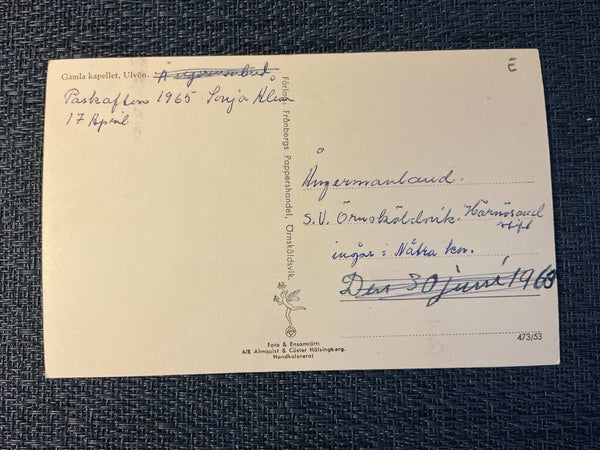 Gamla kapellet, Ulvön. Ångermanland
Påskafton 1965 Sonja Klein
17 April
E
Förlag: Frånbergs Pappershandel, Örnsköldsvik.
Ångermanland.
S.V. Örnsköldsvik. Härnösand
stift
ingår i Nätra kn.
Den 30 juni 1968
Foto & Ensamrätt:
A/B Almquist & Cöster Hälsingborg.
Handkolorerat
473/53